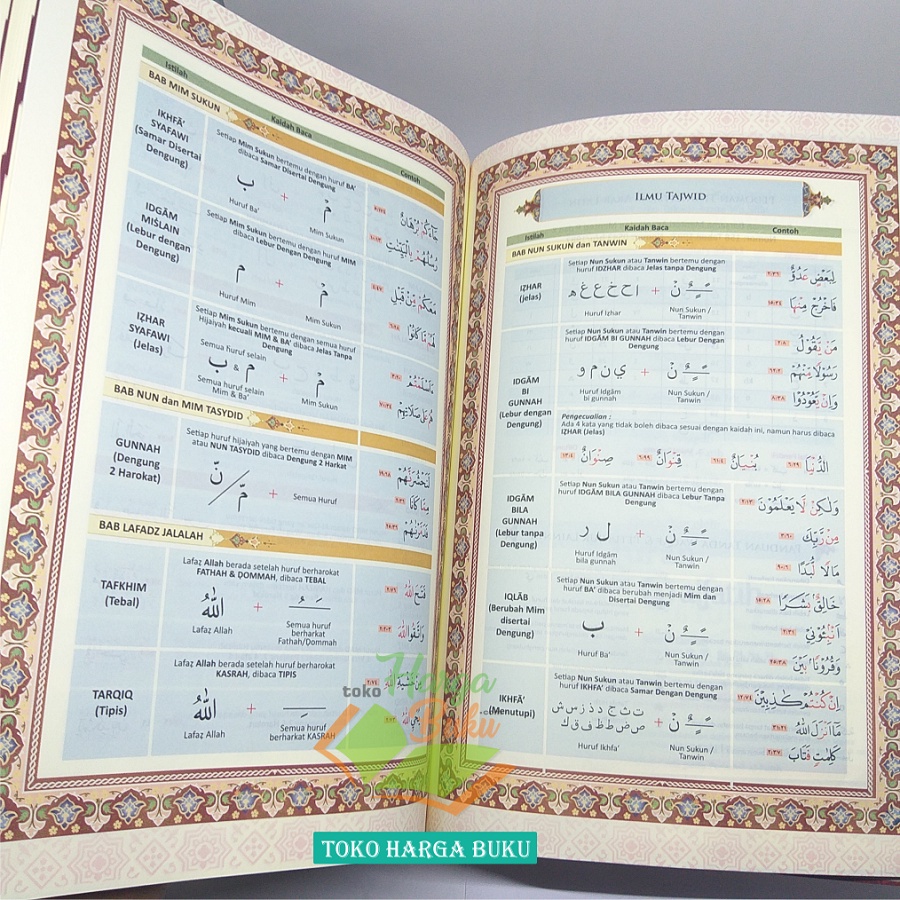 Istilah
Kaidah Baca
Contoh
BAB MIM SUKUN
IKHFĀ'
SYAFAWI
(Samar Disertai
Dengung)
Setiap Mim Sukun bertemu dengan huruf BA'
dibaca Samar Disertai Dengung
ب + مْ
Huruf Ba'
Mim Sukun
IDGĀM
MIŚLAIN
(Lebur dengan
Dengung)
Setiap Mim Sukun bertemu dengan huruf MIM
dibaca Lebur Dengan Dengung
م + مْ
Huruf Mim
Mim Sukun
مَعَكُمْ مِّنْ قَبْلِ
IẒHAR
SYAFAWI
(Jelas)
Setiap Mim Sukun bertemu dengan semua huruf
Hijaiyah kecuali MIM & BA' dibaca Jelas Tanpa
Dengung
Semua huruf selain
ب & م + مْ
Semua huruf selain
Mim & Ba'
Mim Sukun
BAB NUN dan MIM TASYDID
GUNNAH
(Dengung
2 Harokat)
Setiap huruf hijaiyah yang bertemu dengan MIM
atau NUN TASYDID dibaca Dengung 2 Harkat
نّ / مّ + Semua Huruf
BAB LAFADZ JALALAH
TAFKHIM
(Tebal)
Lafaz Allah berada setelah huruf berharokat
FATHAH & ḌOMMAH, dibaca TEBAL
الله +
Lafaz Allah
Semua huruf
berharkat
Fathah/Dommah
فَتَحَ اللهُ
وَاتَّقُوا اللهَ
TARQIQ
(Tipis)
Lafaz Allah berada setelah huruf berharokat
KASRAH, dibaca TIPIS
الله +
Lafaz Allah
Semua huruf
berharkat KASRAH
ILMU TAJWID
Istilah
Kaidah Baca
Contoh
BAB NUN SUKUN dan TANWIN
IẒHAR
(Jelas)
Setiap Nun Sukun atau Tanwin bertemu dengan
huruf IDZHAR dibaca Jelas tanpa Dengung
ا ح خ ع غ ه + نْ
Huruf Izhar
Nun Sukun /
Tanwin
لِبَعْضٍ عَدُوٌّ
فَاخْرُجْ مِنْهَا
IDGĀM
BI
GUNNAH
(Lebur dengan
Dengung)
Setiap Nun Sukun atau Tanwin bertemu dengan
huruf IDGĀM BI GUNNAH dibaca Lebur Dengan
Dengung
ي ن م و + نْ
Huruf Idgām
bi gunnah
Nun Sukun /
Tanwin
مَنْ يَّقُوْلُ
رَسُوْلًا مِّنْهُمْ
وَاِنْ يَّعُوْدُوْا
Pengecualian :
Ada 4 kata yang tidak boleh dibaca sesuai dengan kaidah ini, namun harus dibaca
IẒHAR (Jelas)
الدُّنْيَا بُنْيَانٌ قِنْوَانٌ صِنْوَانٌ
IDGĀM
BILA
GUNNAH
(Lebur tanpa
Dengung)
Setiap Nun Sukun atau Tanwin bertemu dengan
huruf IDGĀM BILA GUNNAH dibaca Lebur Tanpa
Dengung
ل ر + نْ
Huruf Idgām
bila gunnah
Nun Sukun /
Tanwin
وَلٰكِنْ لَّا يَعْلَمُوْنَ
مِنْ رَّبِّكَ
مَالًا لُّبَدًا
IQLĀB
(Berubah Mim
disertai
Dengung)
Setiap Nun Sukun atau Tanwin bertemu dengan
huruf BA' dibaca berubah menjadi Mim dan
Disertai Dengung
ب + نْ
Huruf Ba'
Nun Sukun /
Tanwin
خَالِقٌ بَشَرًا
IKHFĀ'
(Menutupi)
Setiap Nun Sukun atau Tanwin bertemu dengan
huruf IKHFA' dibaca Samar Dengan Dengung
ت ث ج د ذ ز س ش
ص ض ط ظ ف ق ك + نْ
Huruf Ikhfa'
Nun Sukun /
Tanwin
اِنْ كُنْتُمْ كٰذِبِيْنَ
مَا اَنْزَلَ اللهُ
كَلِمٰتٍ فَتَابَ
toko
Harga
Buku
TOKO HARGA BUKU